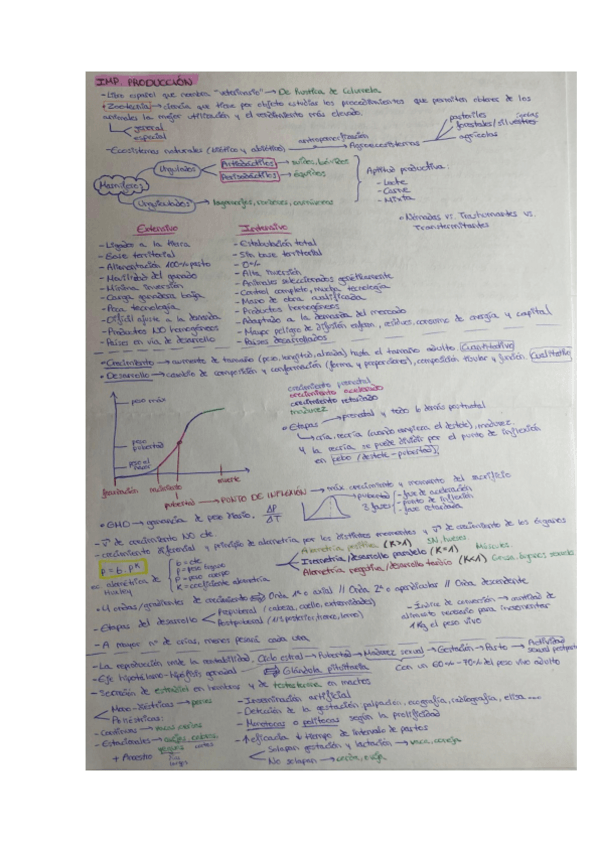 IMP. PRODUCCIÓN
- Libro español que nombra "veterinario" → De Rustica de Columela
• Zootecnia → ciencia que tiene por objeto estudiar los procedimientos que permiten obtener de los
animales la mejor utilización y el rendimiento más elevado.
general
especial
- Ecosistemas naturales (biótico y abiótico) antropomorfización → Agroecosistemas
pastorales
forestales/silvestres
agrícolas
Mamíferos
Ungulados
Artiodáctilos → suidos, bóvidos
Perisodáctilos → équidos
Unguiculados →
Aptitud productiva:
- Leche
- Carne
- Mixta
• Nómadas vs. Trashumantes vs.
Transterminantes
Extensivo
- Ligado a la tierra
- Base territorial
- Alimentación 100% pasto
- Movilidad del ganado
- Mínima inversión
- Carga ganadera baja
- Poca tecnología
- Difícil ajuste a la demanda
- Productos NO homogéneos
- Países en vía de desarrollo
Intensivo
- Estabulación total
- Sin base territorial
- 0%
- Alta inversión
- Animales seleccionados genéticamente
- Control completo, mucha tecnología
- Mano de obra cualificada
- Productos homogéneos
- Adaptado a la demanda del mercado
- Mayor peligro de difusión enferm, residuos, consumo de energía y capital
- Países desarrollados
• Crecimiento → aumento de tamaño (peso, longitud, alzada) hasta el tamaño adulto. Cuantitativo
• Desarrollo → cambio de composición y conformación (forma y proporciones), composición tisular y función. Cualitativo
peso máx
peso pubertad
peso al nacer
fecundación
nacimiento
pubertad
muerte
crecimiento prenatal
crecimiento acelerado
crecimiento retardado
madurez
• Etapas → prenatal y todo lo demás postnatal
cría, recría (cuando empieza el destete), madurez.
y la recría se puede dividir por el punto de inflexión
en cebo (destete-pubertad)
→ PUNTO DE INFLEXIÓN → máx. crecimiento y momento del sacrificio
pubertad
3 fases
- fase de aceleración
- punto de inflexión
- fase retardada
• GMD → ganancia de peso diario. ΔP/ΔT
- v̄ de crecimiento NO cte.
- crecimiento diferencial y principio de alometría por los distintos momentos y v̄ de crecimiento de los órganos
P = b · pᴷ
ec. alométrica de Huxley
b = cte
P = peso cuerpo
K = coeficiente alometría
Alometría positiva (K>1)
Isometría/desarrollo paralelo (K=1) Músculos.
Alometría negativa/desarrollo tardío (K<1)
• 4 ondas/gradientes de crecimiento → Onda 1ª o axial // Onda 2ª o apendicular // Onda descendente
- Etapas del desarrollo
Prepuberal (cabeza, cuello, extremidades)
Postpuberal
- Índice de conversión → cantidad de
alimento necesario para incrementar
1 Kg el peso vivo
- A mayor nº de crías, menos pesará cada una
- La reproducción mide la rentabilidad. Ciclo estral → Pubertad → Madurez sexual → Gestación → Parto → Actividad
sexual postparto
- Eje hipotálamo-hipófisis gonadal → Glándula pituitaria Con un 60%-70% del peso vivo adulto
- Secreción de estradiol en hembras y de testosterona en machos
Mono-éstricas → perras
Poliéstricas:
- Continuas → vacas, cerdas
- Estacionales → ovejas, cabras, yeguas
+ Anestro
- Inseminación artificial
- Detección de la gestación palpación, ecografía, radiografía, elisa ...
- Monotocas o politocas según la prolificidad
- ↑ eficacia ↓ tiempo de intervalo de partos
Solapan gestación y lactación → vaca, coneja
No solapan → cerda, oveja